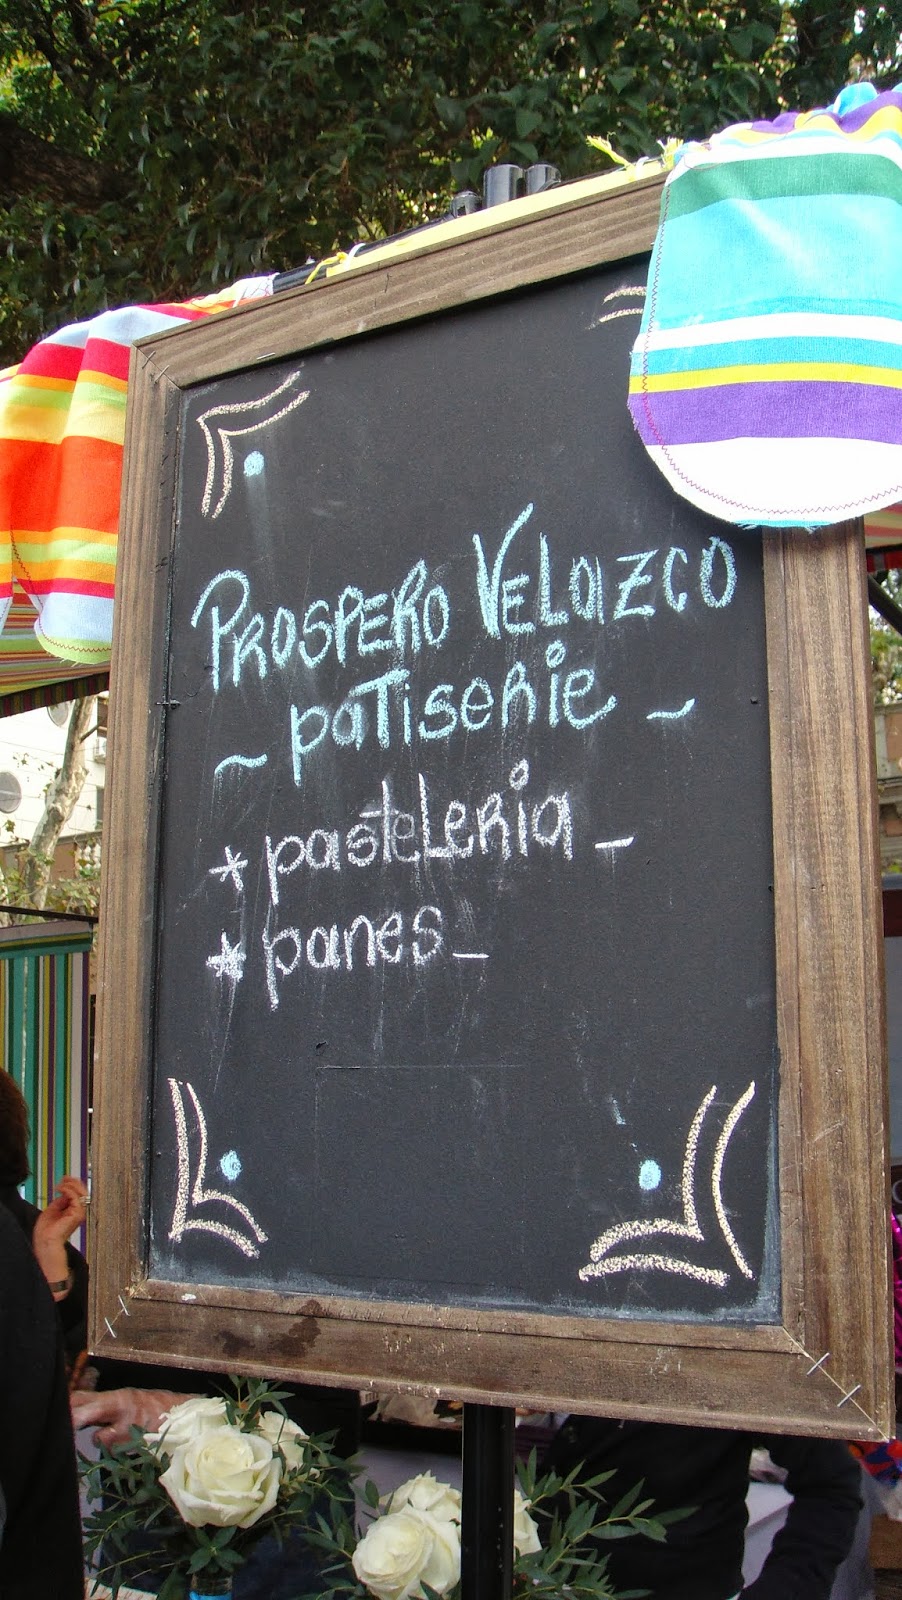 PROSPERO VELAZCO
~ patiserie ~
* pasteleria _
* panes _